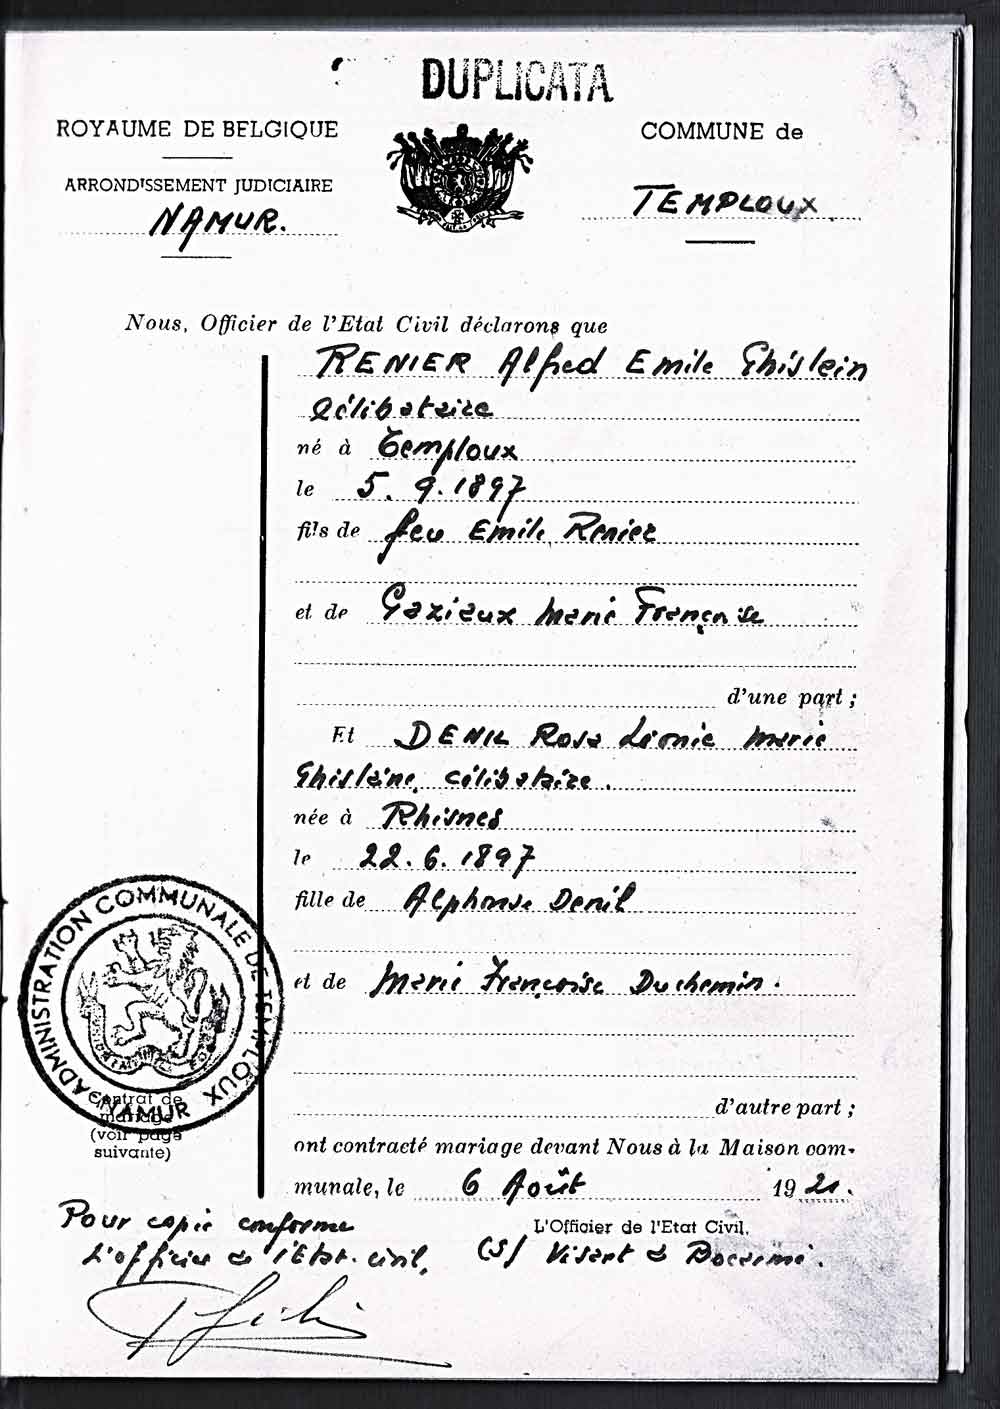 DUPLICATA
ROYAUME DE BELGIQUE
COMMUNE de
ARRONDISSEMENT JUDICIAIRE
NAMUR.
TEMPLOUX
Nous, Officier de l'Etat Civil déclarons que
RENIER Alfred Emile Ghislein
Célibataire
né à Temploux
le 5. 9. 1897
fils de feu Emile Renier
et de Gaziaux Marie Françoise
d'une part ;
Et DENIL Rosa Léonie Marie
Ghislaine, célibataire.
née à Rhisnes
le 22. 6. 1897
fille de Alphonse Denil
et de Marie Françoise Duchemin.
d'autre part ;
ont contracté mariage devant Nous à la Maison com-
munale, le 6 Août 1921.
ADMINISTRATION COMMUNALE DE TEMPLOUX
NAMUR
Contrat de
mariage
(voir page
suivante)
Pour copie conforme
L'officier de l'Etat-civil,
L'Officier de l'Etat Civil,
(s) Visart de Bocarmé.